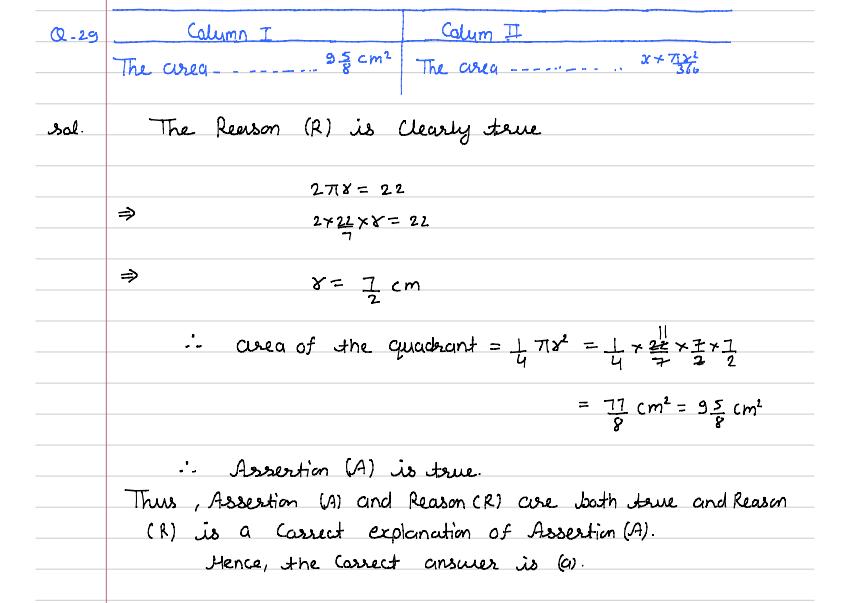 Q-29 Column I Colum II
The area- - - - - - - - - - 9 5/8 cm² The area - - - - - - - - - - x × πr²/360
sol. The Reason (R) is Clearly true
2πr = 22
⇒ 2 × 22/7 × r = 22
⇒ r = 7/2 cm
∴ area of the quadrant = 1/4 πr² = 1/4 × 22/7 × 7/2 × 7/2 11
= 77/8 cm² = 9 5/8 cm²
∴ Assertion (A) is true.
Thus, Assertion (A) and Reason (R) are both true and Reason
(R) is a Correct explanation of Assertion (A).
Hence, the Correct answer is (a).